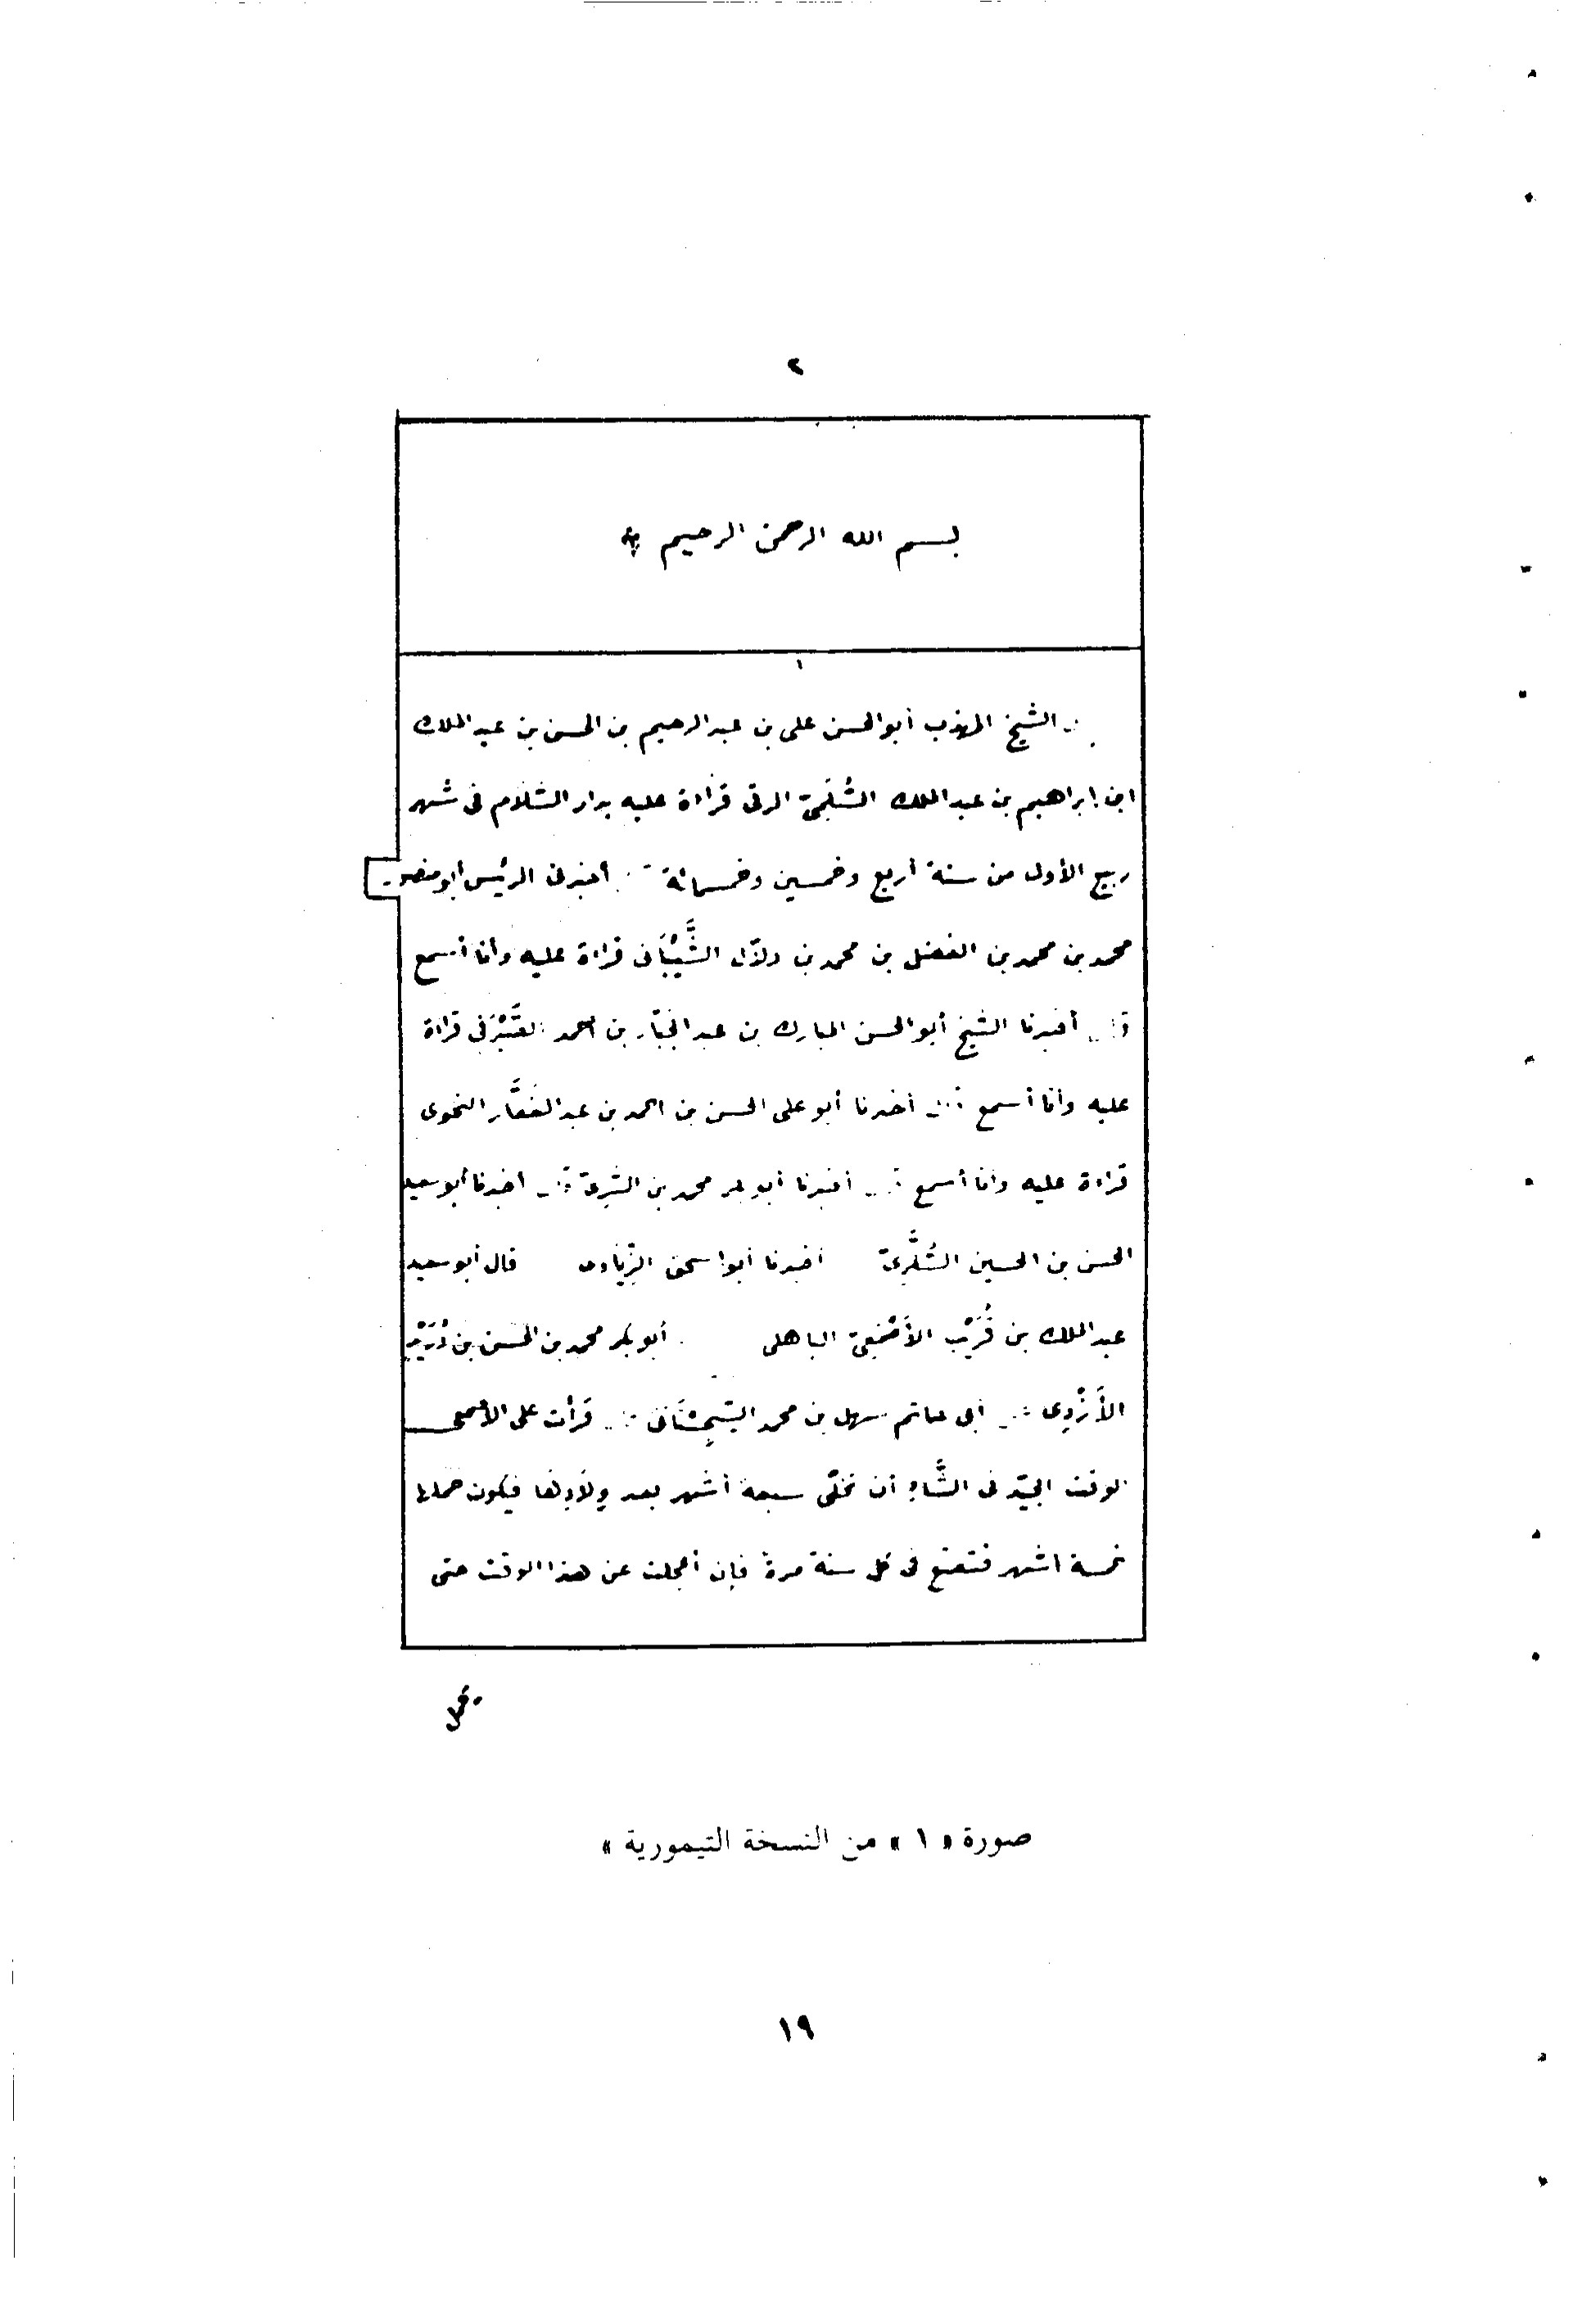 ٢
بسم الله الرحمن الرحيم
الشيخ المهذب أبو الحسن على بن عبد الرحيم بن الحسن بن عبد الملك
ابن إبراهيم بن عبد الملك السُّلَمِىّ الرقى قراءة عليه بدار السَّلام فى شهر
ربيع الأول من سنة أربع وخمسين وخمسمائة أخبرنى الرئيس أبو منصور
محمد بن محمد بن الفضل بن محمد بن دلال الشَّيْبَانى قراءة عليه وأنا أسمع
أخبرنا الشيخ أبو الحسن المبارك بن عبد الجبّار بن أحمد الصَّيْرَفى قراءة
عليه وأنا أسمع أخبرنا أبو على الحسن بن احمد بن عبد الغفَّار النحوى
قراءة عليه وأنا أسمع أخبرنا أبو بكر محمد بن السّرىّ أخبرنا أبو سعيد
الحسن بن الحسين السُّكَّرِىّ أخبرنا أبو اسحق الزّيادى قال أبو سعيد
عبد الملك بن قُرَيْب الأَصْمَعِىّ الباهلى أبو بكر محمد بن الحسن بن دُرَيْدٍ
الأَزْدِى أبى حاتم سهل بن محمد السِّجِسْتَانى قرأت على الأصمعى
الوقت الجيّد فى الشَّاءِ أن تخلّى سبعة أشهر بعد وِلَادِها فيكون حملها
خمسة اشهر فتضع فى كل سنة مرة فإن أعجلت عن هذا الوقت حتى
صورة « ١ » من النسخة التيمورية »
١٩